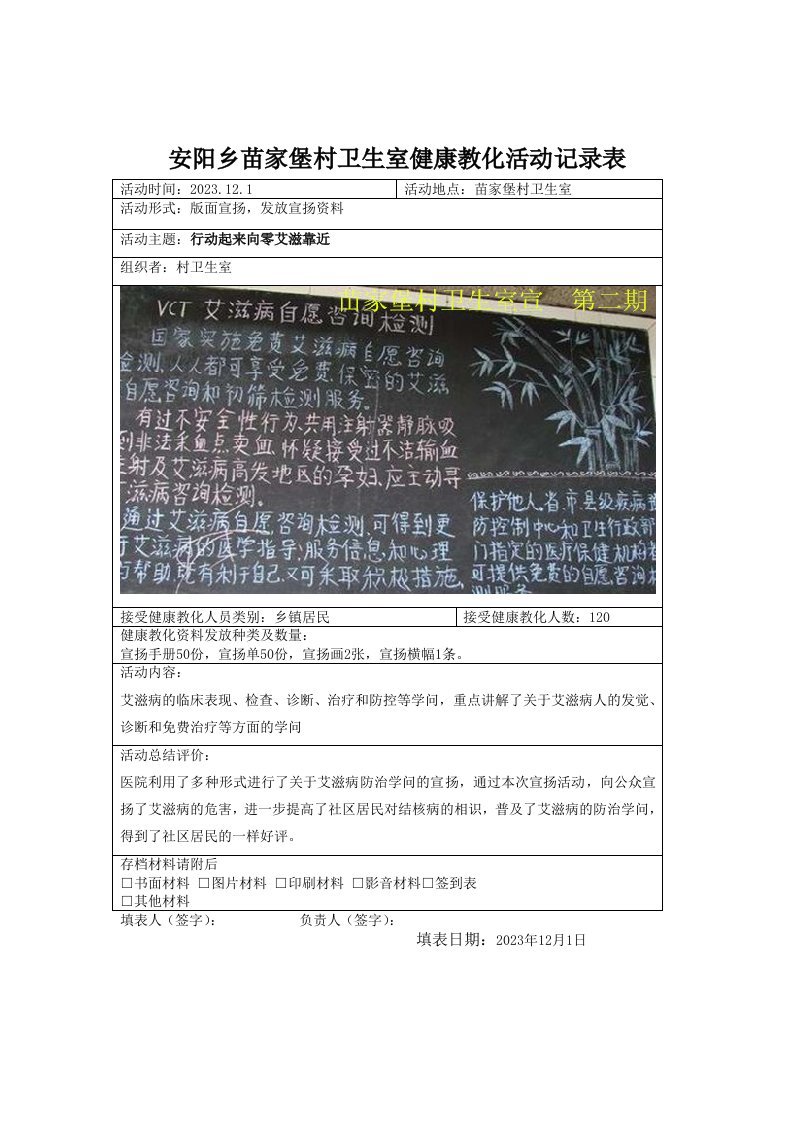 安阳乡苗家堡村卫生室健康教化活动记录表
活动时间：2023.12.1
活动地点：苗家堡村卫生室
活动形式：版面宣扬，发放宣扬资料
活动主题：行动起来向零艾滋靠近
组织者：村卫生室
苗家堡村卫生室宣 第二期
VCT 艾滋病自愿咨询检测
国家实施免费艾滋病自愿咨询
检测、人人都可享受免费、保密的艾滋
自愿咨询和初筛检测服务。
有过不安全性行为、共用注射器静脉吸
到非法采血点卖血、怀疑接受过不洁输血
注射及艾滋病高发地区的孕妇、应主动寻
艾滋病咨询检测。
通过艾滋病自愿咨询检测，可得到更
于艾滋病的医学指导、服务信息和心理
与帮助 既有利于自己、又可采取积极措施，
保护他人、省、市、县级疾病预
防控制中心和卫生行政部
门指定的医疗保健机构者
可提供免费的自愿咨询检
测服务
接受健康教化人员类别：乡镇居民
接受健康教化人数：120
健康教化资料发放种类及数量：
宣扬手册50份，宣扬单50份，宣扬画2张，宣扬横幅1条。
活动内容：
艾滋病的临床表现、检查、诊断、治疗和防控等学问，重点讲解了关于艾滋病人的发觉、
诊断和免费治疗等方面的学问
活动总结评价：
医院利用了多种形式进行了关于艾滋病防治学问的宣扬，通过本次宣扬活动，向公众宣
扬了艾滋病的危害，进一步提高了社区居民对结核病的相识，普及了艾滋病的防治学问，
得到了社区居民的一样好评。
存档材料请附后
□书面材料 □图片材料 □印刷材料 □影音材料□签到表
□其他材料
填表人（签字）： 负责人（签字）：
填表日期：2023年12月1日